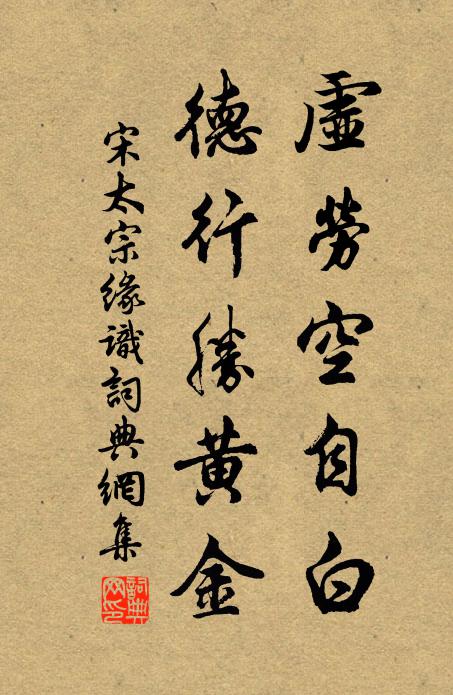 虛勞空自白
德行勝黃金
宋太宗緣識詞典網集
詞典網印